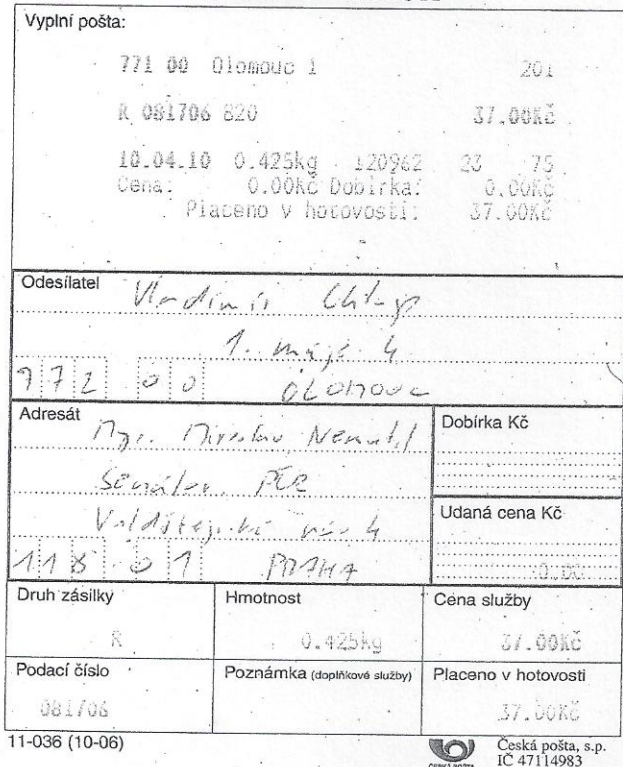 Vyplní pošta:
771 00 Olomouc 1 201
R 081706 820 37.00Kč
10.04.10 0.425kg 120962 23 75
Cena: 0.00Kč Dobírka: 0.00Kč
Placeno v hotovosti: 37.00Kč
Odesílatel
Vladimír
1. máje 4
772 00 OLOMOUC
Adresát
Mgr. Miroslav
Senátor PČR
nám 4
118 01 PRAHA
Dobírka Kč
Udaná cena Kč
0.00
Druh zásilky Hmotnost Cena služby
R 0.425kg 37.00Kč
Podací číslo Poznámka (doplňkové služby) Placeno v hotovosti
081706 37.00Kč
11-036 (10-06)
ČESKÁ POŠTA
Česká pošta, s.p.
IČ 47114983